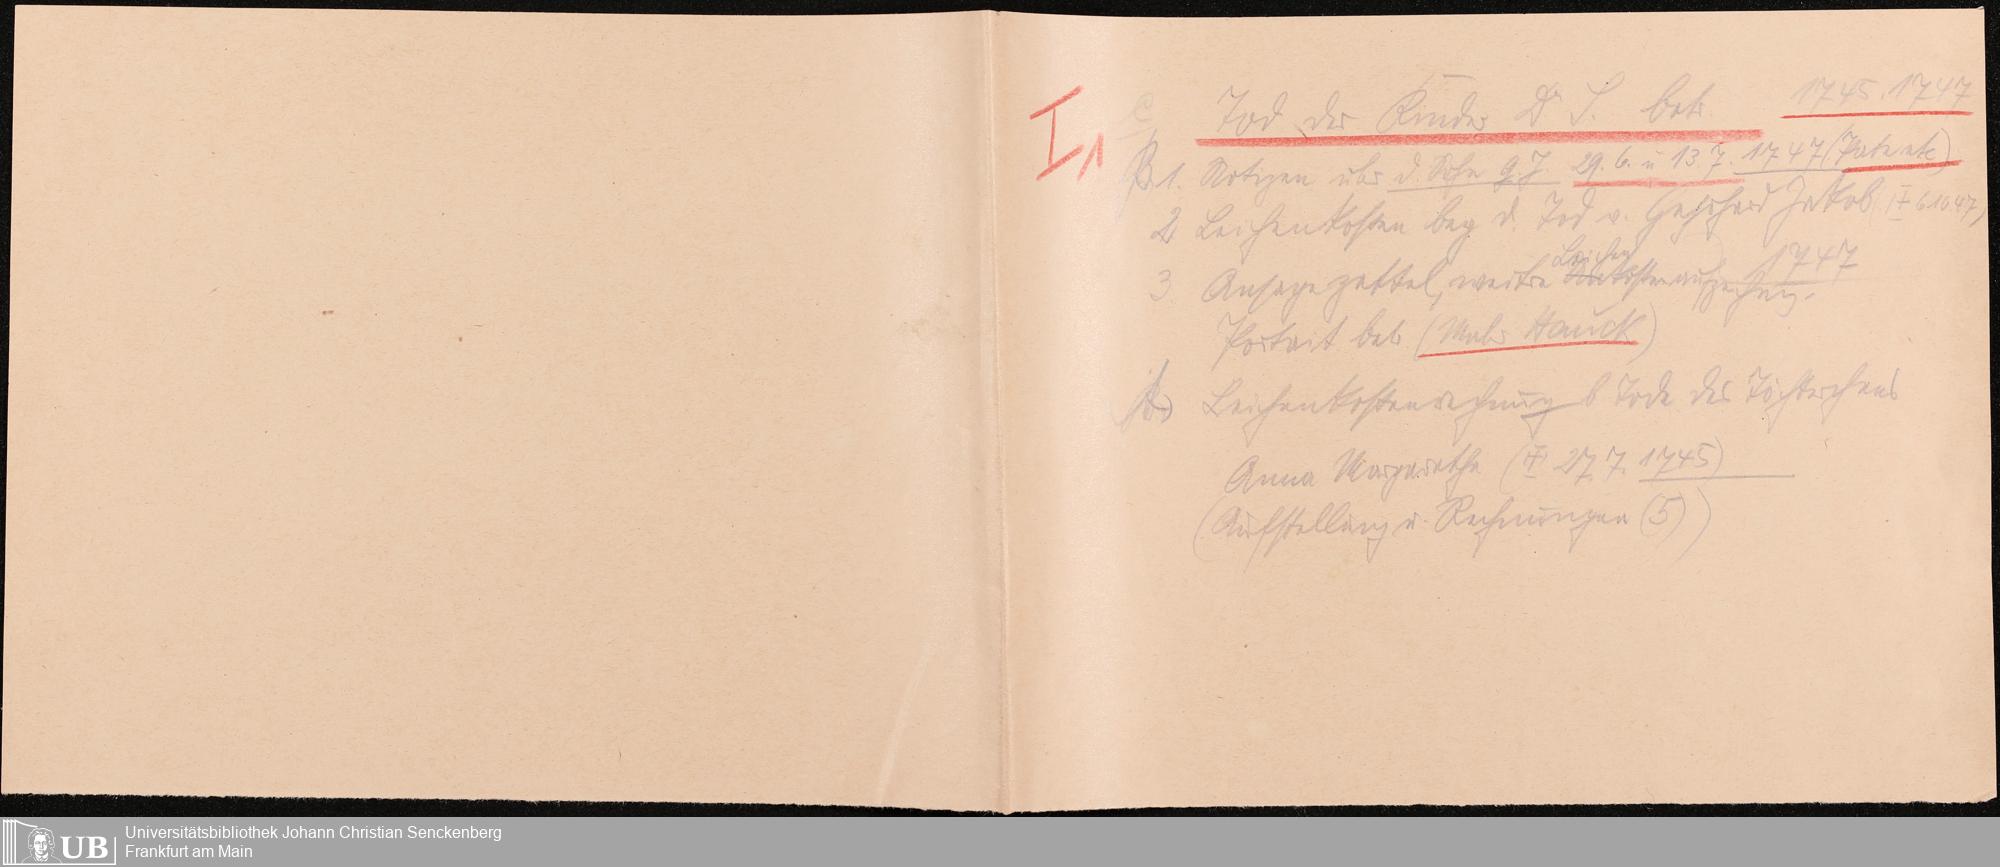 I,1
c Tod der Kinder Dr S. betr. 1745. 1747
B. 1. Notizen über d. Sohn G. J. 29. 6. u 13 7. 1747 (Pate etc)
2 Leichenkosten beg d. Tod v. Gerhard Jakob (Ŧ 6 10 47)
3. Ansagezettel, weitere Leichenkostenaufzeichng. 1747
Portrait betr (Maler Hauck)
A) Leichenkostenrechnung b Tode des Töchterchens
Anna Margarethe (Ŧ 27. 7. 1745)
(Aufstellung u. Rechnungen (5))
UB
Universitätsbibliothek Johann Christian Senckenberg
Frankfurt am Main